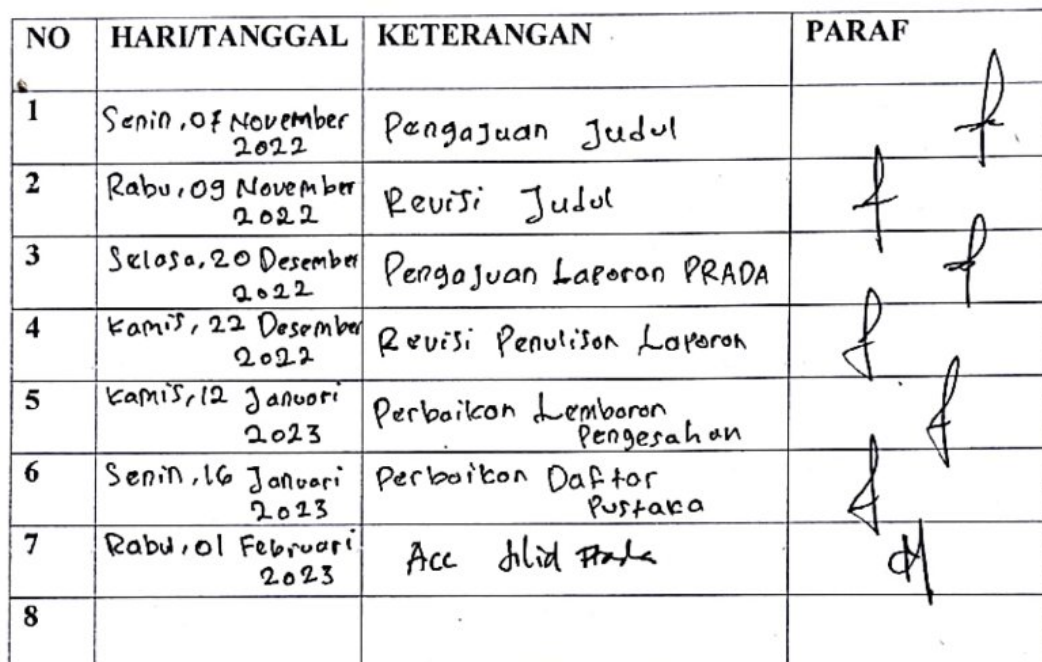 NO HARI/TANGGAL KETERANGAN PARAF
1 Senin, 07 November 2022 Pengajuan Judul
2 Rabu, 09 November 2022 Revisi Judul
3 Selasa, 20 Desember 2022 Pengajuan Laporan PRADA
4 Kamis, 22 Desember 2022 Revisi Penulisan Laporan
5 Kamis, 12 Januari 2023 Perbaikan Lembaran Pengesahan
6 Senin, 16 Januari 2023 Perbaikan Daftar Pustaka
7 Rabu, 01 Februari 2023 Acc Jilid Prada
8